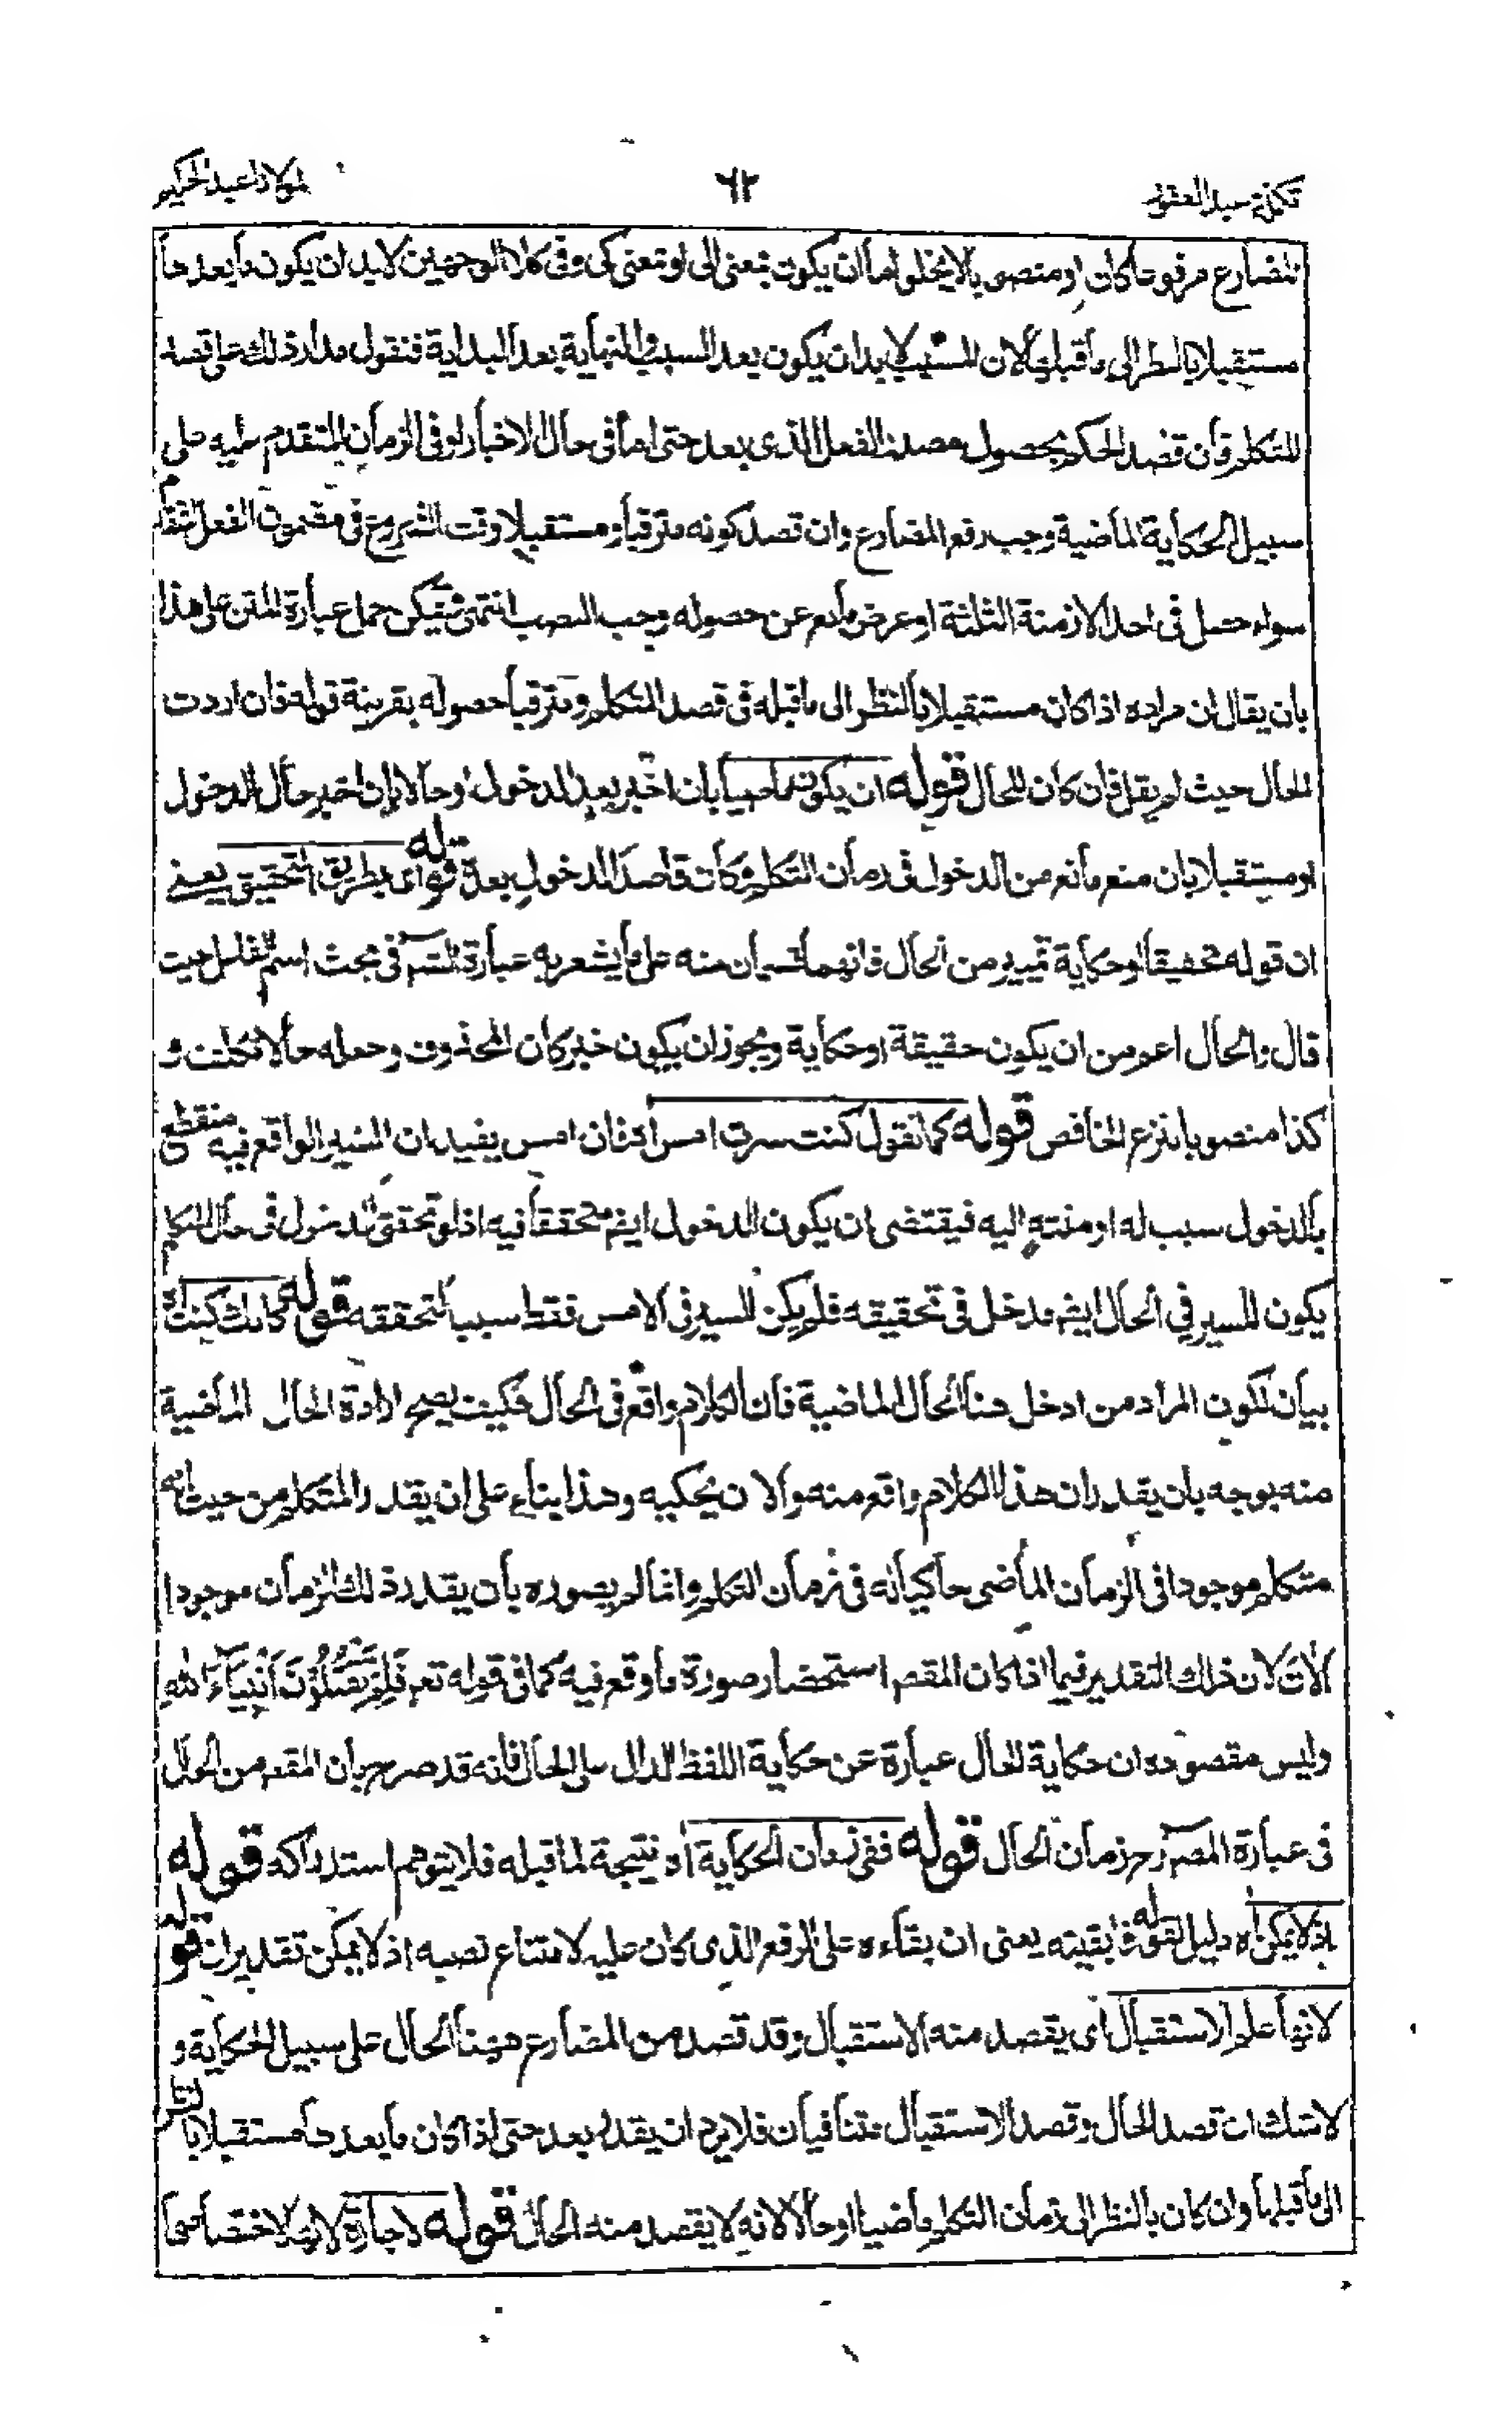 تكملة عبد الغفور ٦٢ لمولانا عبد الحكيم
المضارع مرفوعا كان او منصوبا لا يخلو اما ان يكون بمعنى الى او بمعنى كى وفى كلا الوجهين لابد ان يكون ما بعدها
مستقبلا بالنظر الى ما قبلها لان المسبب لابد ان يكون بعد السبب والنهاية بعد البداية فنقول مدار ذلك على قصد
المتكلم فان قصد الحكم بحصول مصدر الفعل الذى بعد حتى اما فى حال الاخبار او فى الزمان المتقدم عليه على
سبيل الحكاية الماضية وجب رفع المضارع وان قصد كونه مترقبا ومستقبلا وقت الشروع فى مضمون الفعل المتقدم
سواء حصل فى احد الازمنة الثلثة او عرض مانع عن حصوله وجب النصب انتهى فيمكن حمل عبارة المتن على هذا
بان يقال ان مراده اذا كان مستقبلا بالنظر الى ما قبله فى قصد المتكلم ومترقبا حصوله بقرينة قوله فان اردت
الحال حيث لم يقل فان كان للحال قوله ان يكون ماضيا بان اخبر بعد الدخول او حالا بان اخبر حال الدخول
او مستقبلا بان منع مانع من الدخول فى زمان التكلم وكان قاصد الدخول بعد قوله اى بطريق التحقيق يعنى
ان قوله تحقيقا او حكاية تمييز من الحال فانهما قسمان منه على ما يشعر به عبارة الشرح فى بحث اسم الفاعل حيث
قال والحال اعم من ان يكون حقيقة او حكاية ويجوز ان يكون خبر كان المحذوف وجعله حالا تكلف و
كذا منصوبا بنزع الخافض قوله كما تقول كنت سرت امس اه فان امس يفيد ان السير الواقع فيه منقطع
بالدخول سبب له او منته اليه فيقتضى ان يكون الدخول ايضا محققا فيه اذ لو تحقق الدخول فى حال التكلم
يكون للسير فى الحال ايضا مدخل فى تحقيقه فلم يكن السير فى الامس فقط سببا لتحققه قوله كانك كنت اه
بيان لكون المراد من ادخل هنا الحال الماضية فان الكلام واقع فى الحال فكيف يصح ارادة الحال الماضية
منه بوجه بان يقدر ان هذا الكلام واقع منه والان يحكيه وهذا بناء على ان يقدر المتكلم من حيث انه
متكلم موجودا فى الزمان الماضى حاكيا له فى زمان التكلم وانما لم يصوره بان يقدر ذلك الزمان موجودا
الآن لان ذلك التقدير فيما اذا كان المقصود استحضار صورة ما وقع فيه كما فى قوله تعالى فَلِمَ تَقْتُلُوْنَ اَنْبِيَاءَ اللهِ
وليس مقصوده ان حكاية الحال عبارة عن حكاية اللفظ الدال على الحال فانه قد صرح بان المقصود من الحال
فى عبارة المصنف رح زمان الحال قوله ففى زمان الحكاية اه نتيجة لما قبله فلا يتوهم استدراكه قوله
اذ لا يمكن اه دليل لقوله فابقيته يعنى ان بقاءه على الرفع الذى كان عليه لامتناع نصبه اذ لا يمكن تقدير ان قوله
لانها علم الاستقبال اى يقصد منه الاستقبال وقد قصد من المضارع ههنا الحال على سبيل الحكاية و
لا شك ان قصد الحال وقصد الاستقبال متنافيان فلا يرد ان يقدر بعد حتى اذا كان ما بعدها مستقبلا بالنظر
الى ما قبلها وان كان بالنظر الى زمان التكلم ماضيا او حالا لانه لا يقصد منه الحال قوله لا جارة لاختصاصها